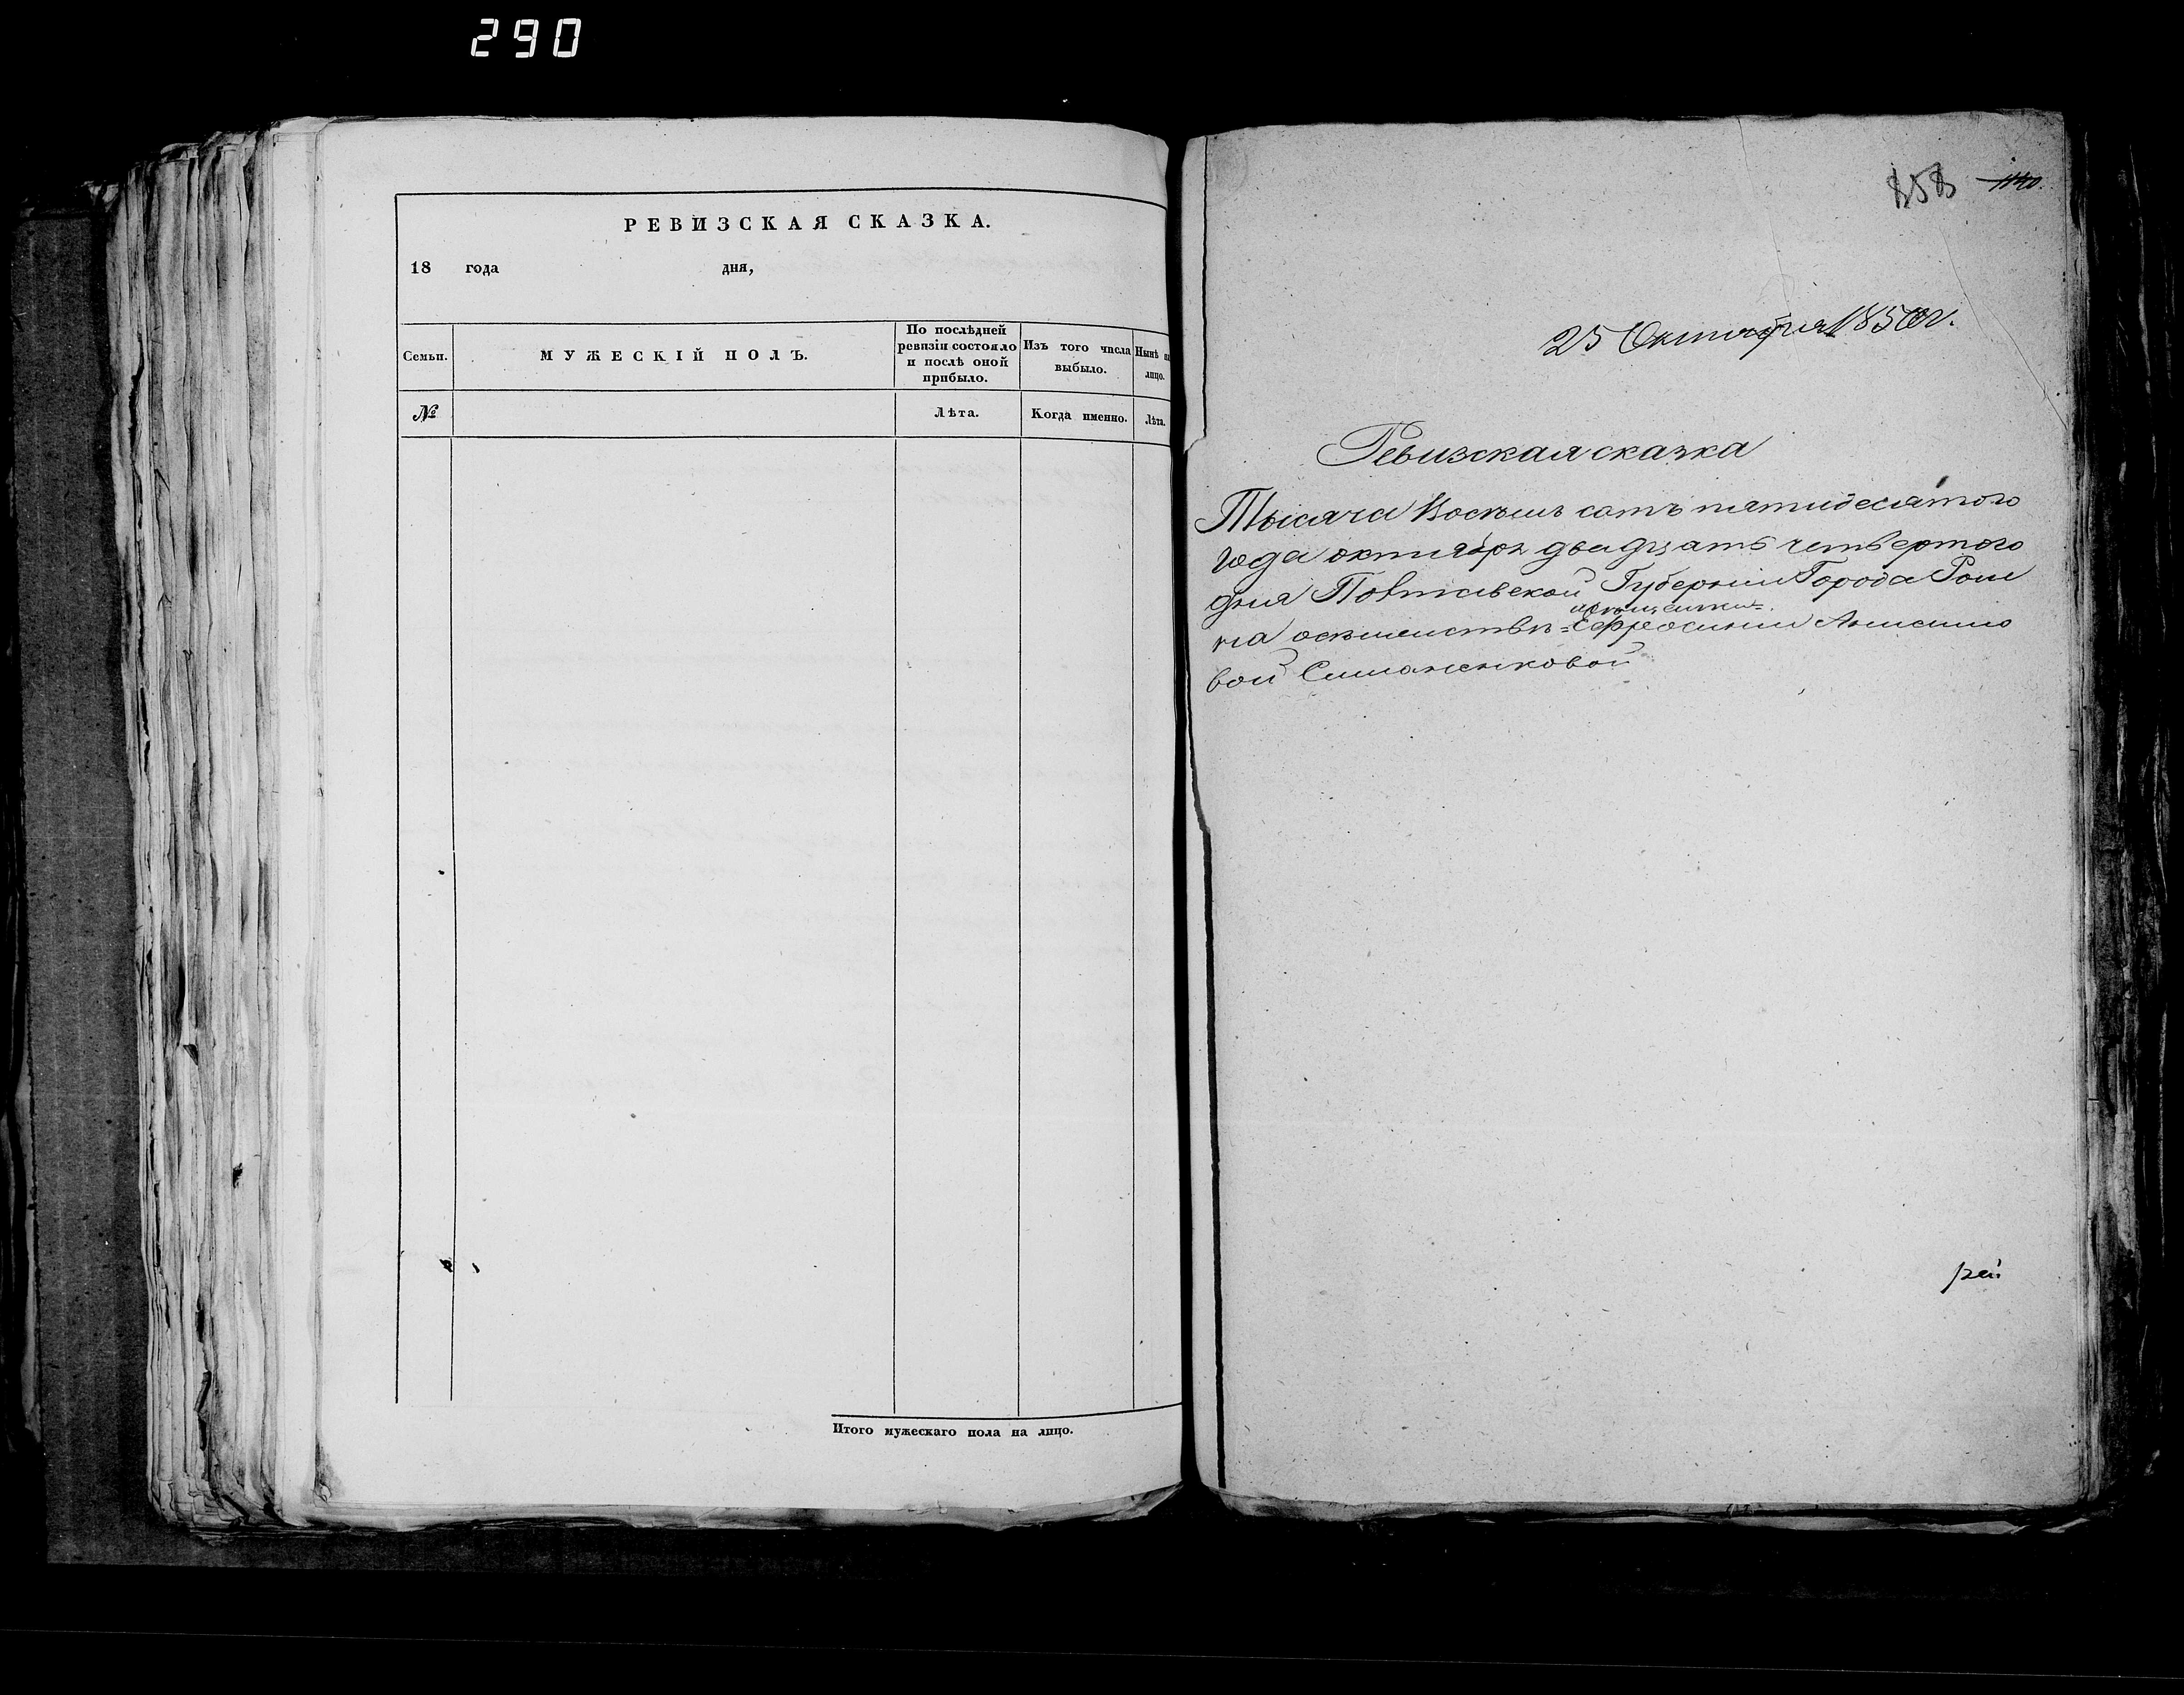 290
РЕВИЗСКАЯ СКАЗКА.
18 года дня,
Семьи.
МУЖЕСКІЙ ПОЛЪ.
По послѣдней
ревизіи состояло
и послѣ оной
прибыло.
Изъ того числа
выбыло.
Нынѣ на
лицо.
№
Лѣта.
Когда именно.
Лѣта.
Итого мужескаго пола на лицо.
1140.
25 Октября 1850 г.
Ревизская сказка
Тысяча Восемь сотъ пятидесятого
года октября двадцать четвертого
дня Полтавской Губерніи Города Роме
на
вой Симоненковой